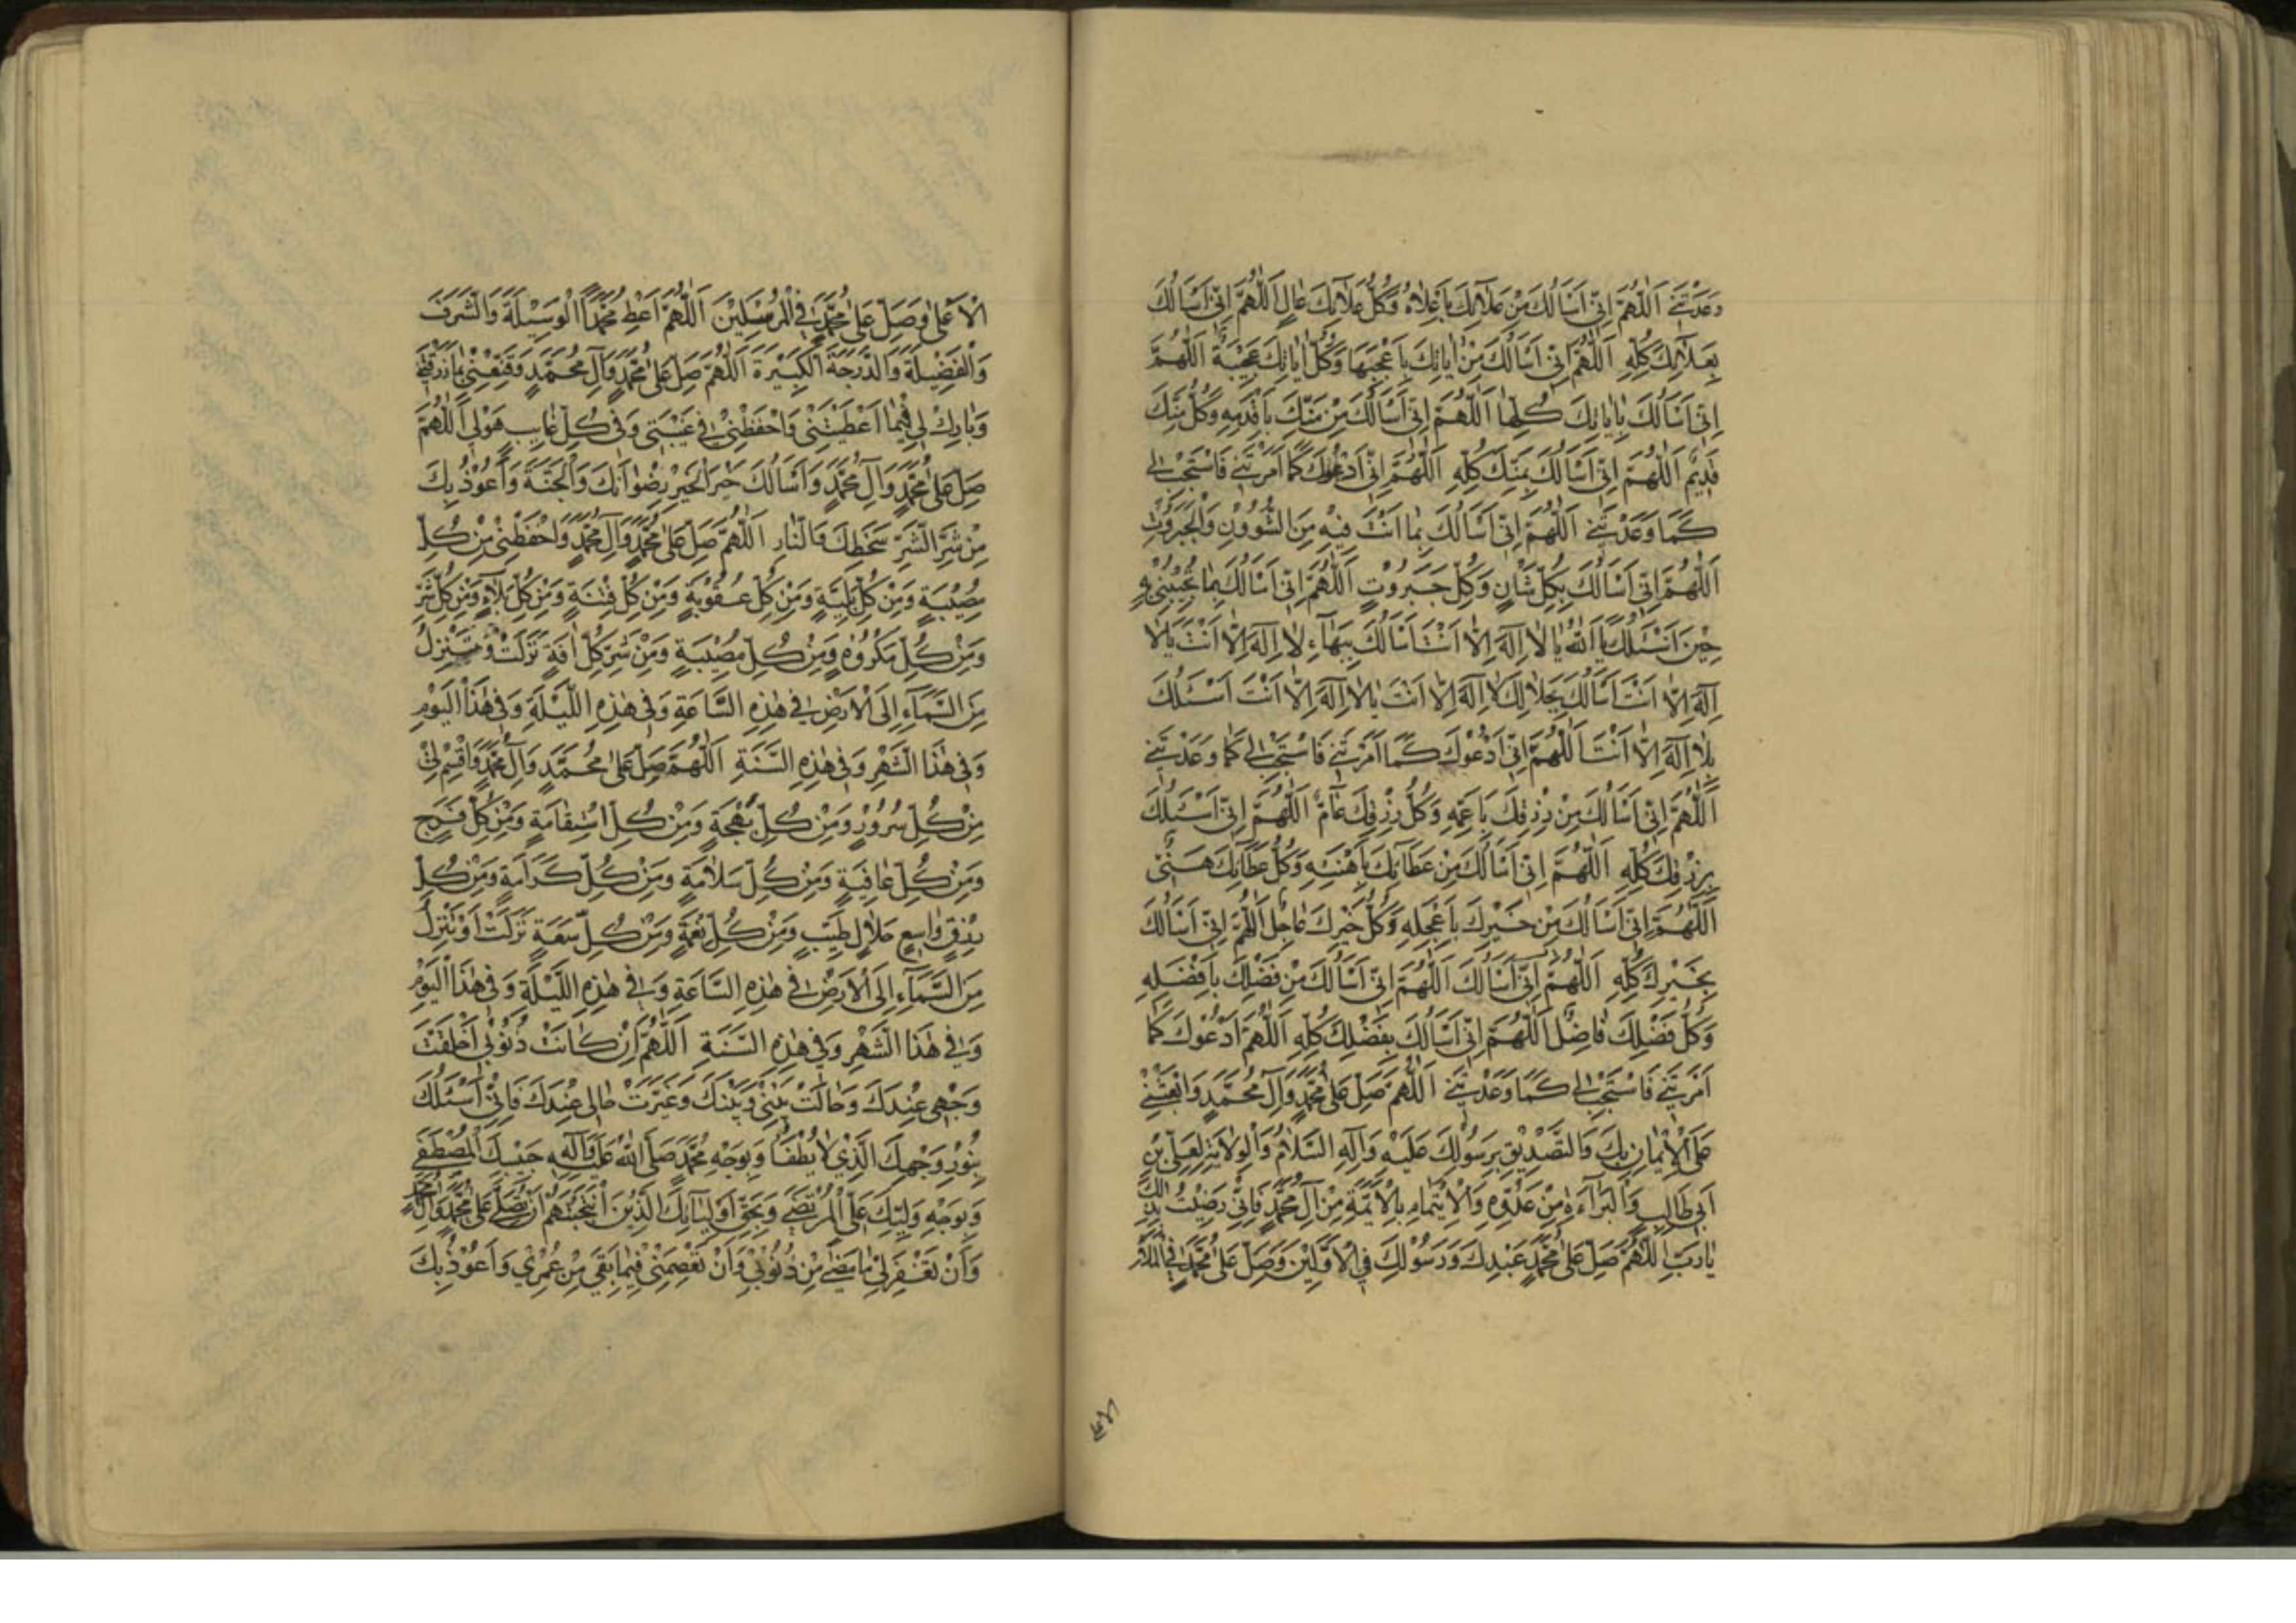 وَعَدْتَنِي اَللّٰهُمَّ اِنِّي اَسْاَلُكَ مِنْ عَلَآئِكَ بِاَعْلَاهُ وَكُلُّ عَلَآئِكَ عَالٍ اَللّٰهُمَّ اِنِّي اَسْاَلُكَ
بِعَلَآئِكَ كُلِّهِ اَللّٰهُمَّ اِنِّي اَسْاَلُكَ مِنْ اٰيَاتِكَ بِاَعْجَبِهَا وَكُلُّ اٰيَاتِكَ عَجِيْبَةٌ اَللّٰهُمَّ
اِنِّي اَسْاَلُكَ بِاٰيَاتِكَ كُلِّهَا اَللّٰهُمَّ اِنِّي اَسْاَلُكَ مِنْ مَنِّكَ بِاَقْدَمِهِ وَكُلُّ مَنِّكَ
قَدِيْمٌ اَللّٰهُمَّ اِنِّي اَسْاَلُكَ بِمَنِّكَ كُلِّهِ اَللّٰهُمَّ اِنِّي اَدْعُوْكَ كَمَا اَمَرْتَنِي فَاسْتَجِبْ لِي
كَمَا وَعَدْتَنِي اَللّٰهُمَّ اِنِّي اَسْاَلُكَ بِمَا اَنْتَ فِيْهِ مِنَ الشُّؤُوْنِ وَالْجَبَرُوْتِ
اَللّٰهُمَّ اِنِّي اَسْاَلُكَ بِكُلِّ شَاْنٍ وَكُلِّ جَبَرُوْتٍ اَللّٰهُمَّ اِنِّي اَسْاَلُكَ بِمَا تُجِيْبُنِيْ بِهِ
حِيْنَ اَسْئَلُكَ يَا اَللّٰهُ يَا لَا اِلٰهَ اِلَّا اَنْتَ اَسْاَلُكَ بِبَهَآءِ لَا اِلٰهَ اِلَّا اَنْتَ يَا لَا
اِلٰهَ اِلَّا اَنْتَ اَسْاَلُكَ بِجَلَالِ لَا اِلٰهَ اِلَّا اَنْتَ يَا لَا اِلٰهَ اِلَّا اَنْتَ اَسْئَلُكَ
بِلَا اِلٰهَ اِلَّا اَنْتَ اَللّٰهُمَّ اِنِّي اَدْعُوْكَ كَمَا اَمَرْتَنِي فَاسْتَجِبْ لِي كَمَا وَعَدْتَنِي
اَللّٰهُمَّ اِنِّي اَسْاَلُكَ مِنْ رِزْقِكَ بِاَعَمِّهِ وَكُلُّ رِزْقِكَ عَآمٌّ اَللّٰهُمَّ اِنِّي اَسْئَلُكَ
بِرِزْقِكَ كُلِّهِ اَللّٰهُمَّ اِنِّي اَسْاَلُكَ مِنْ عَطَآئِكَ بِاَهْنَئِهِ وَكُلُّ عَطَآئِكَ هَنِيْئٌ
اَللّٰهُمَّ اِنِّي اَسْاَلُكَ مِنْ خَيْرِكَ بِاَعْجَلِهِ وَكُلُّ خَيْرِكَ عَاجِلٌ اَللّٰهُمَّ اِنِّي اَسْاَلُكَ
بِخَيْرِكَ كُلِّهِ اَللّٰهُمَّ اِنِّي اَسْاَلُكَ اَللّٰهُمَّ اِنِّي اَسْاَلُكَ مِنْ فَضْلِكَ بِاَفْضَلِهِ
وَكُلُّ فَضْلِكَ فَاضِلٌ اَللّٰهُمَّ اِنِّي اَسْاَلُكَ بِفَضْلِكَ كُلِّهِ اَللّٰهُمَّ اَدْعُوْكَ كَمَا
اَمَرْتَنِي فَاسْتَجِبْ لِي كَمَا وَعَدْتَنِي اَللّٰهُمَّ صَلِّ عَلٰى مُحَمَّدٍ وَآلِ مُحَمَّدٍ وَابْعَثْنِيْ
عَلَى الْاِيْمَانِ بِكَ وَالتَّصْدِيْقِ بِرَسُوْلِكَ عَلَيْهِ وَآلِهِ السَّلَامُ وَالْوِلَايَةِ لِعَلِيِّ بْنِ
اَبِي طَالِبٍ وَالْبَرَآءَةِ مِنْ عَدُوِّهِ وَالْاِيْتِمَامِ بِالْاَئِمَّةِ مِنْ آلِ مُحَمَّدٍ فَاِنِّي رَضِيْتُ بِذٰلِكَ
يَا رَبِّ اَللّٰهُمَّ صَلِّ عَلٰى مُحَمَّدٍ عَبْدِكَ وَرَسُوْلِكَ فِي الْاَوَّلِيْنَ وَصَلِّ عَلٰى مُحَمَّدٍ فِي الْمَلَاءِ
الْاَعْلٰى وَصَلِّ عَلٰى مُحَمَّدٍ فِي الْمُرْسَلِيْنَ اَللّٰهُمَّ اَعْطِ مُحَمَّدًا الْوَسِيْلَةَ وَالشَّرَفَ
وَالْفَضِيْلَةَ وَالدَّرَجَةَ الْكَبِيْرَةَ اَللّٰهُمَّ صَلِّ عَلٰى مُحَمَّدٍ وَآلِ مُحَمَّدٍ وَقَنِّعْنِيْ بِمَا رَزَقْتَنِي
وَبَارِكْ لِي فِيْمَا اَعْطَيْتَنِيْ وَاحْفَظْنِيْ فِي غَيْبَتِي وَفِي كُلِّ غَائِبٍ هُوَ لِي اَللّٰهُمَّ
صَلِّ عَلٰى مُحَمَّدٍ وَآلِ مُحَمَّدٍ وَاَسْاَلُكَ خَيْرَ الْخَيْرِ رِضْوَانَكَ وَالْجَنَّةَ وَاَعُوْذُ بِكَ
مِنْ شَرِّ الشَّرِّ سَخَطِكَ وَالنَّارِ اَللّٰهُمَّ صَلِّ عَلٰى مُحَمَّدٍ وَآلِ مُحَمَّدٍ وَاحْفَظْنِيْ مِنْ كُلِّ
مُصِيْبَةٍ وَمِنْ كُلِّ بَلِيَّةٍ وَمِنْ كُلِّ عُقُوْبَةٍ وَمِنْ كُلِّ فِتْنَةٍ وَمِنْ كُلِّ بَلَآءٍ وَمِنْ كُلِّ شَرٍّ
وَمِنْ كُلِّ مَكْرُوْهٍ وَمِنْ كُلِّ مُصِيْبَةٍ وَمِنْ شَرِّ كُلِّ اٰفَةٍ نَزَلَتْ وَتَنْزِلُ
مِنَ السَّمَآءِ اِلَى الْاَرْضِ فِي هٰذِهِ السَّاعَةِ وَفِي هٰذِهِ اللَّيْلَةِ وَفِي هٰذَا الْيَوْمِ
وَفِي هٰذَا الشَّهْرِ وَفِي هٰذِهِ السَّنَةِ اَللّٰهُمَّ صَلِّ عَلٰى مُحَمَّدٍ وَآلِ مُحَمَّدٍ وَاقْسِمْ لِيْ
مِنْ كُلِّ سُرُوْرٍ وَمِنْ كُلِّ بَهْجَةٍ وَمِنْ كُلِّ اسْتِقَامَةٍ وَمِنْ كُلِّ فَرَجٍ
وَمِنْ كُلِّ عَافِيَةٍ وَمِنْ كُلِّ سَلَامَةٍ وَمِنْ كُلِّ كَرَامَةٍ وَمِنْ كُلِّ
رِزْقٍ وَاسِعٍ حَلَالٍ طَيِّبٍ وَمِنْ كُلِّ نِعْمَةٍ وَمِنْ كُلِّ سَعَةٍ نَزَلَتْ اَوْ تَنْزِلُ
مِنَ السَّمَآءِ اِلَى الْاَرْضِ فِي هٰذِهِ السَّاعَةِ وَفِي هٰذِهِ اللَّيْلَةِ وَفِي هٰذَا الْيَوْمِ
وَفِي هٰذَا الشَّهْرِ وَفِي هٰذِهِ السَّنَةِ اَللّٰهُمَّ اِنْ كَانَتْ ذُنُوْبِي اَخْلَقَتْ
وَجْهِي عِنْدَكَ وَحَالَتْ بَيْنِيْ وَبَيْنَكَ وَغَيَّرَتْ حَالِي عِنْدَكَ فَاِنِّي اَسْئَلُكَ
بِنُوْرِ وَجْهِكَ الَّذِيْ لَا يُطْفَاُ وَبِوَجْهِ مُحَمَّدٍ صَلَّى اللّٰهُ عَلَيْهِ وَآلِهِ حَبِيْبِكَ الْمُصْطَفٰى
وَبِوَجْهِ وَلِيِّكَ عَلِيٍّ الْمُرْتَضٰى وَبِحَقِّ اَوْلِيَآئِكَ الَّذِيْنَ انْتَجَبْتَهُمْ اَنْ تُصَلِّيَ عَلٰى مُحَمَّدٍ وَآلِ مُحَمَّدٍ
وَاَنْ تَغْفِرَ لِيْ مَا مَضٰى مِنْ ذُنُوْبِي وَاَنْ تَعْصِمَنِيْ فِيْمَا بَقِيَ مِنْ عُمْرِيْ وَاَعُوْذُ بِكَ